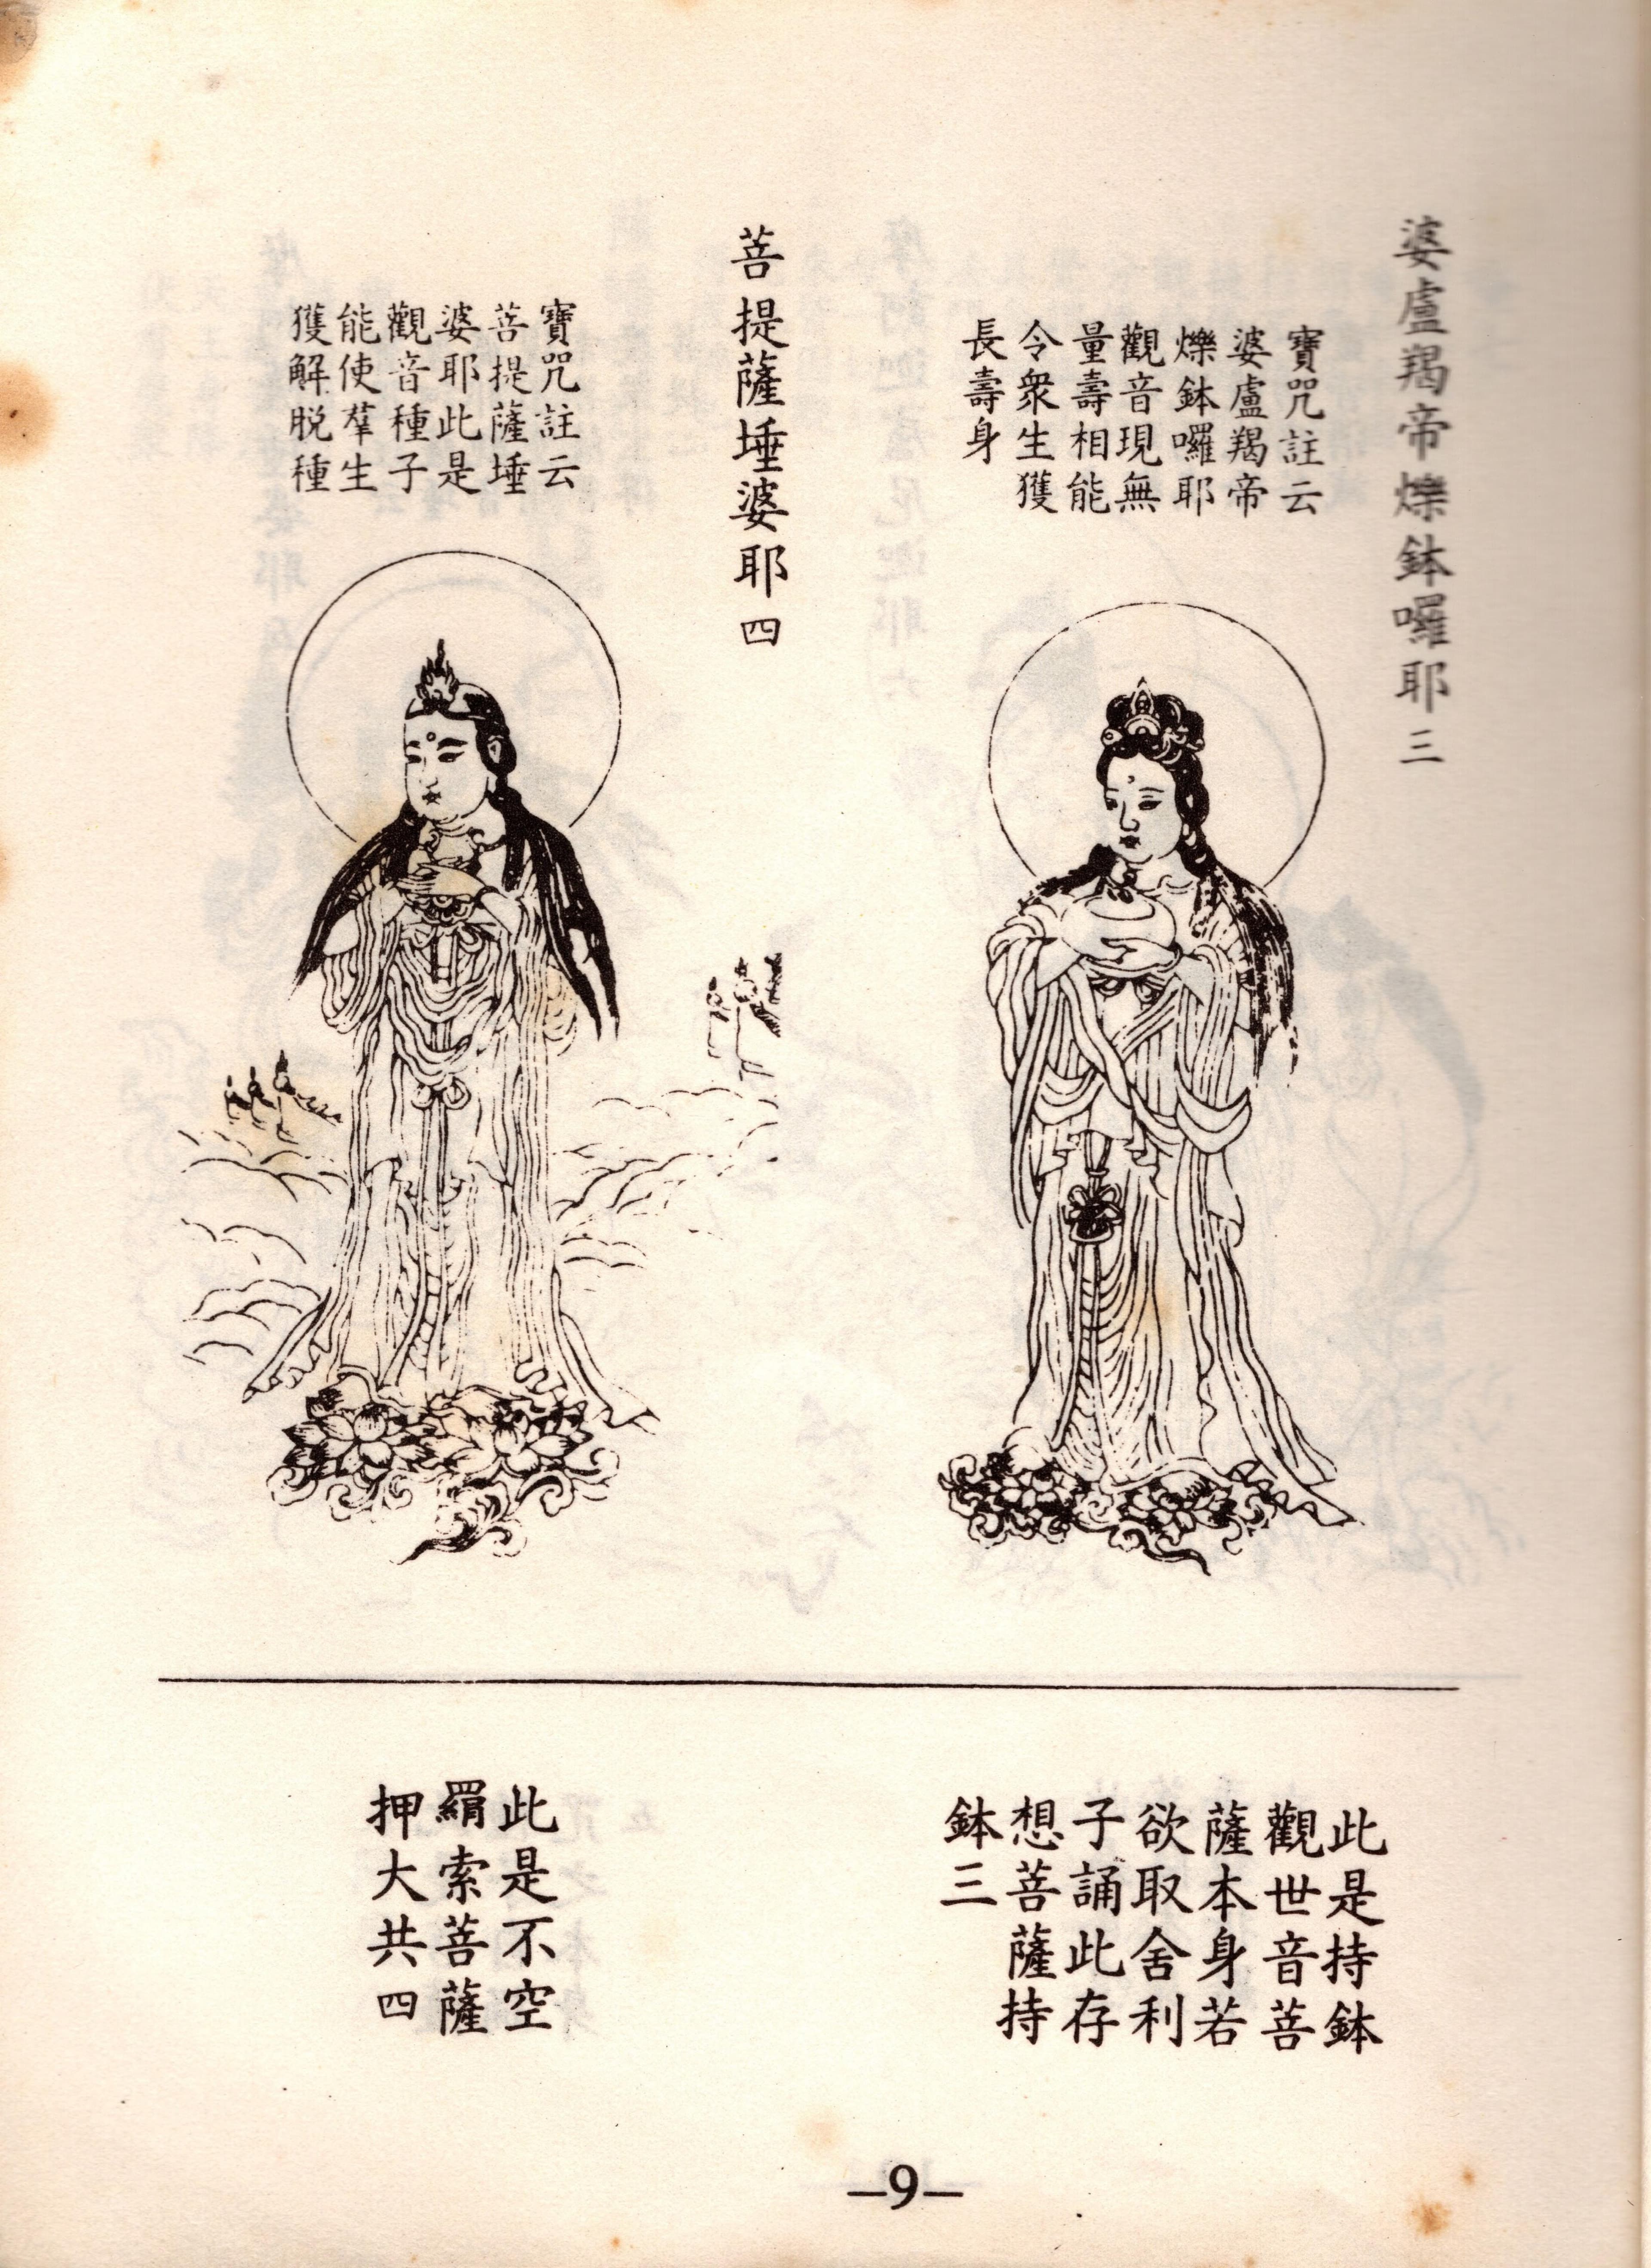 婆盧羯帝爍鉢囉耶三
寶咒註云
婆盧羯帝
爍鉢囉耶
觀音現無
量壽相能
令衆生獲
長壽身
菩提薩埵婆耶四
寶咒註云
菩提薩埵
婆耶此是
觀音種子
能使羣生
獲解脱種
此是持鉢
觀世音菩
薩本身若
欲取舍利
子誦此存
想菩薩持
鉢三
此是不空
羂索菩薩
押大共四
—9—